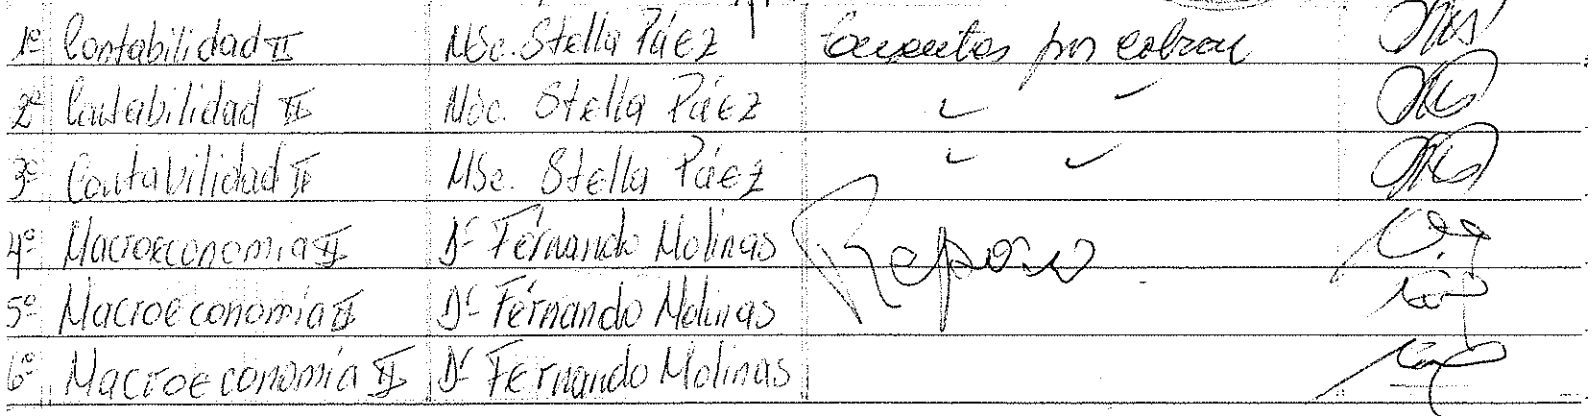 1º Contabilidad II MSc. Stella Páez Cuentas por cobrar
2º Contabilidad II MSc. Stella Páez
3º Contabilidad II MSc. Stella Páez
4º Macroeconomía II Dr Fernando Molinas
5º Macroeconomía II Dr Fernando Molinas
6º Macroeconomía II Dr Fernando Molinas